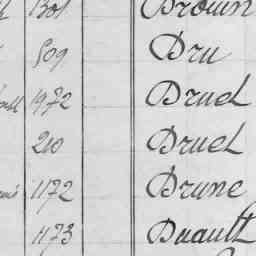 1301 Brown
509 Dru
1972 Druel
210 Druel
1172 Brune
1173 Duault